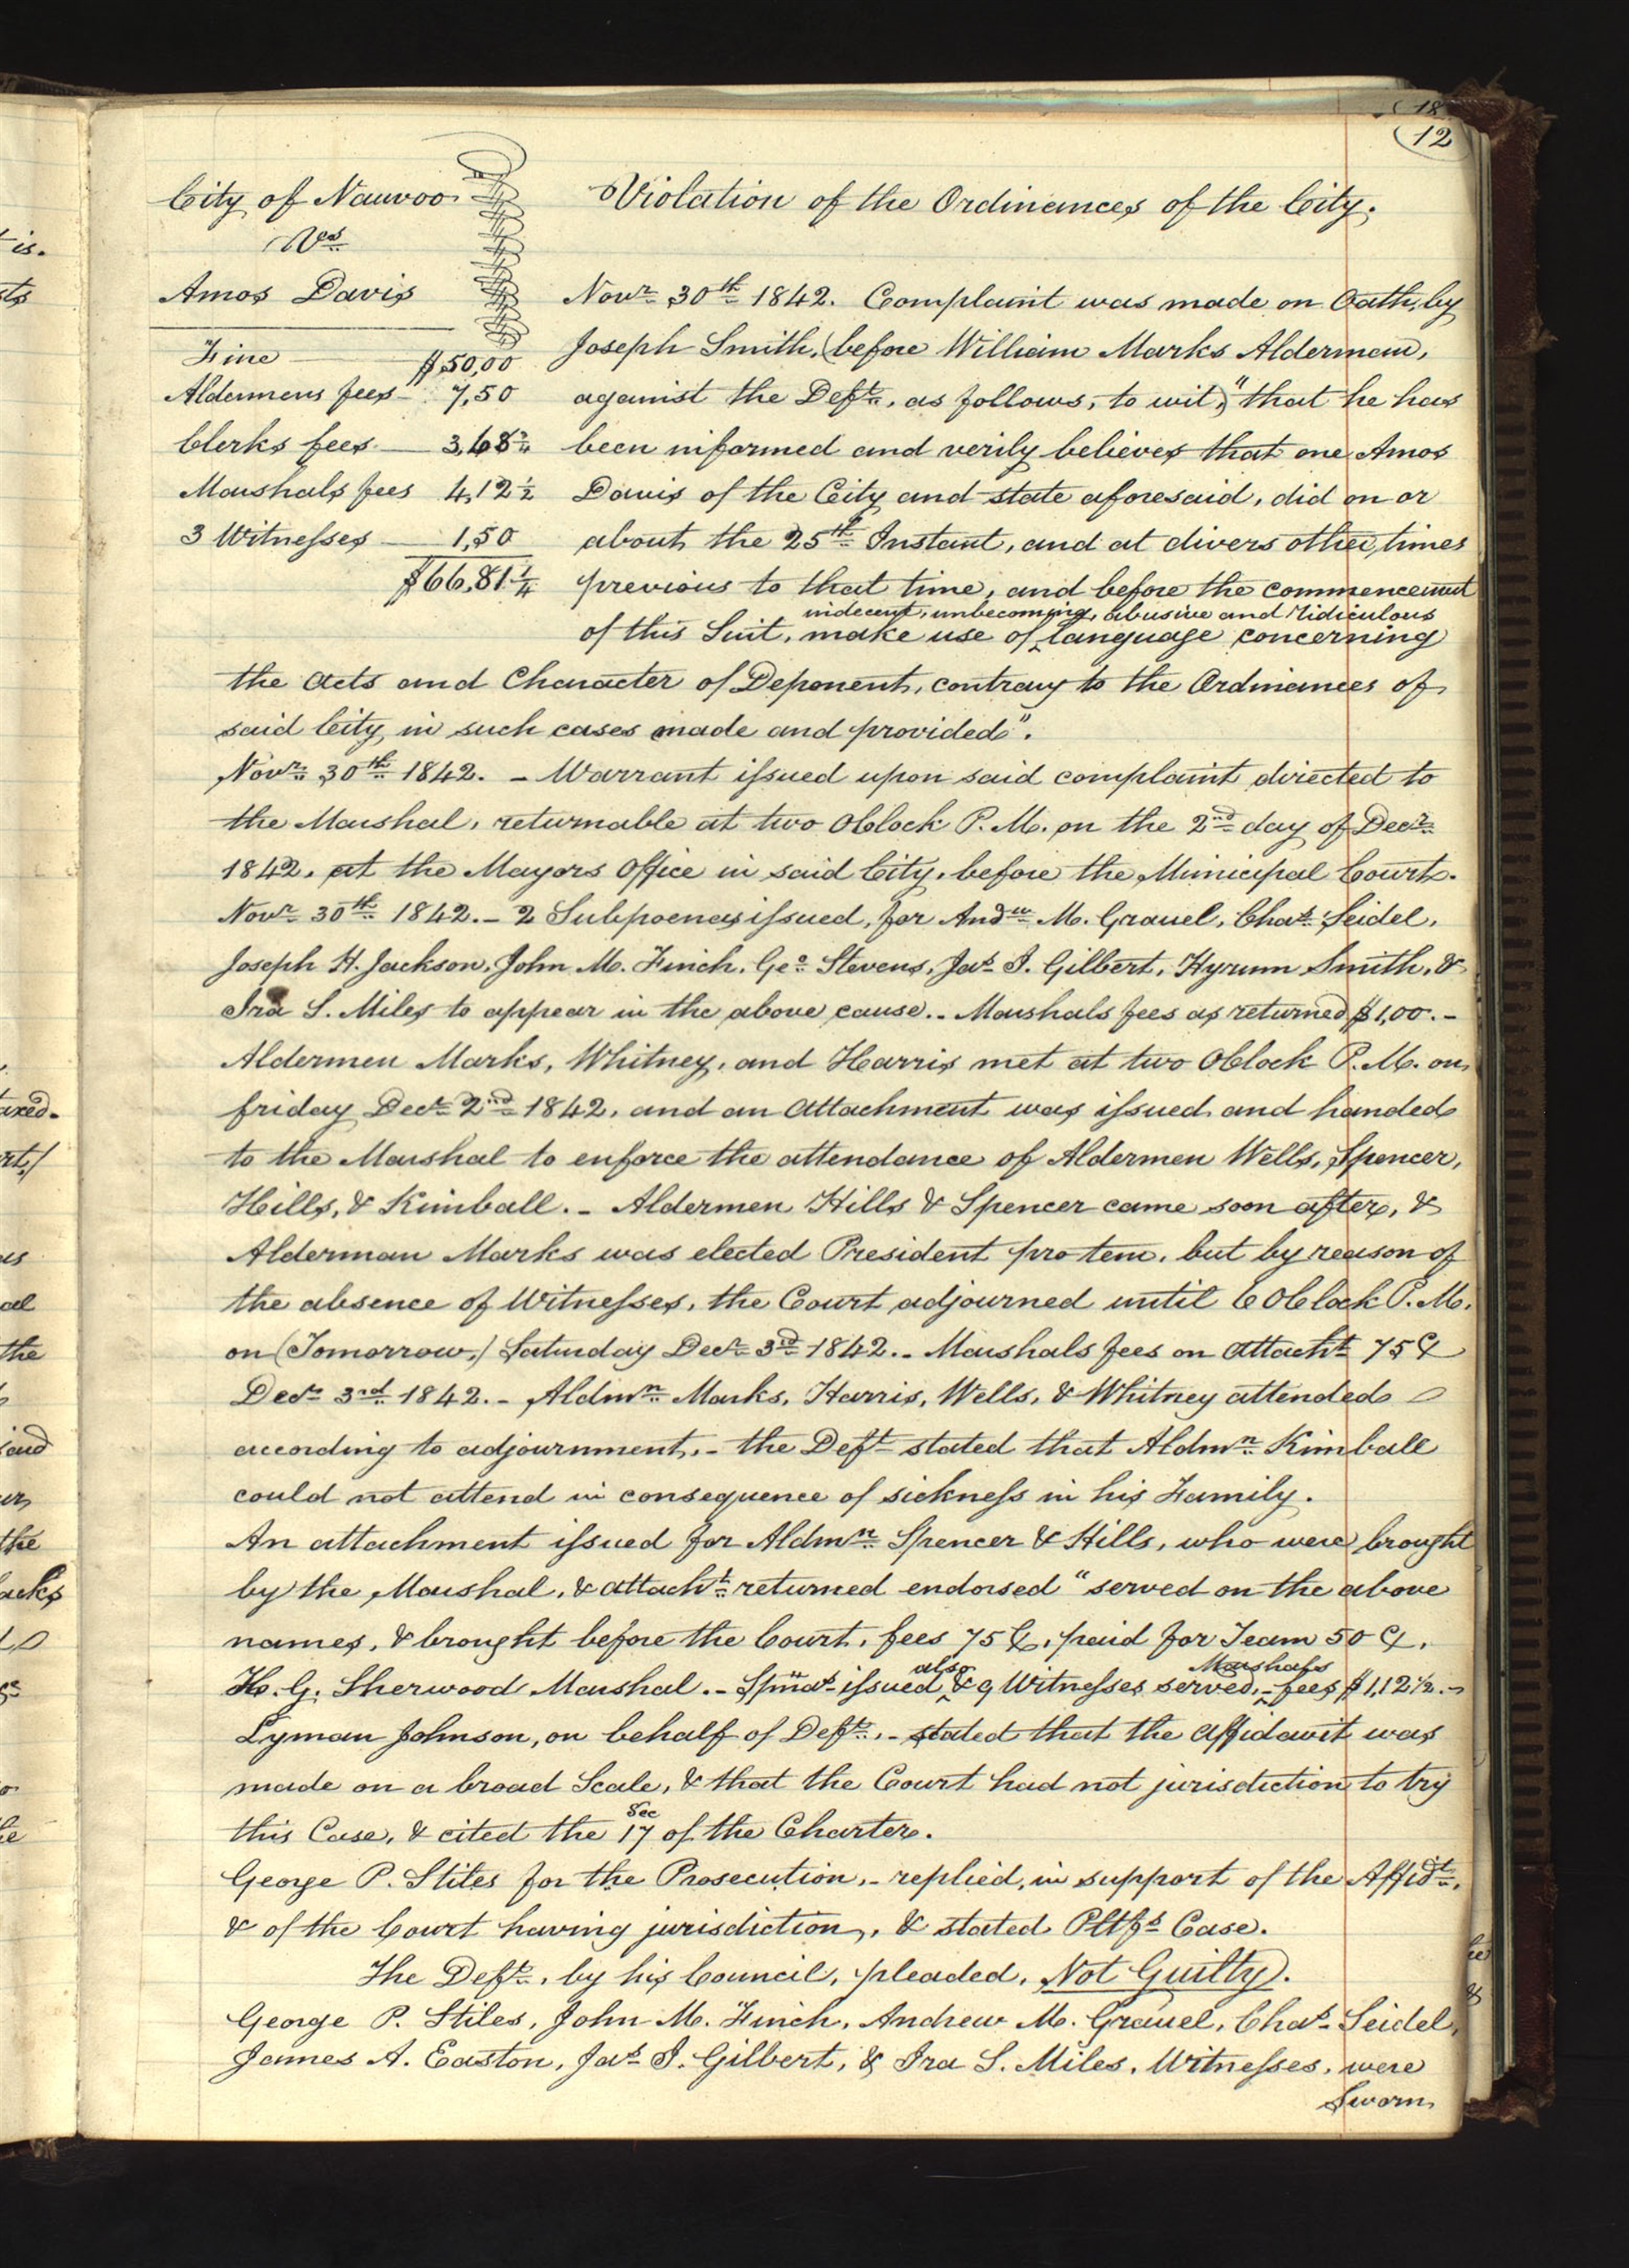 18
12
City of Nauvoo
Vs
Amos Davis
Fine $50,00
Aldermens fees 7,50
Clerks fees 3,68¾
Marshals fees 4,12½
3 Witnesses 1,50
$66,81¼
Violation of the Ordinances of the City.
Novr. 30th. 1842. Complaint was made on Oath, by
Joseph Smith, (before William Marks Alderman,
against the Deft., as follows, to wit,) "that he has
been informed and verily believes that one Amos
Davis of the City and state aforesaid, did on or
about the 25th. Instant, and at divers other times
previous to that time, and before the commencement
indecent, unbecoming, abusive and ridiculous
of this Suit, make use of ^ language concerning
the acts and Character of Deponent, contrary to the Ordinances of
said City, in such cases made and provided".
Novr. 30th. 1842. – Warrant issued upon said complaint directed to
the Marshal, returnable at two OClock P.M. on the 2nd. day of Decr.
1842. at the Mayors Office in said City, before the Municipal Court.
Novr. 30th. 1842. – 2 Subpoenas issued, for Andw. M. Grauel, Chas. Seidel,
Joseph H. Jackson, John M. Finch, Geo. Stevens, Jas. I. Gilbert, Hyrum Smith, &
Ira S. Miles to appear in the above cause. – Marshals fees as returned $1,00. –
Aldermen Marks, Whitney, and Harris met at two OClock P.M. on
friday Decr. 2nd. 1842, and an Attachment was issued and handed
to the Marshal to enforce the attendance of Aldermen Wells, Spencer,
Hills, & Kimball. – Aldermen Hills & Spencer came soon after, &
Alderman Marks was elected President pro tem. but by reason of
the absence of Witnesses, the Court adjourned until 6 OClock P.M.
on (Tomorrow,) Saturday Decr. 3rd. 1842. – Marshals fees on Attacht. 75 Cts
Decr. 3rd. 1842. – Aldmn. Marks, Harris, Wells, & Whitney attended
according to adjournment, – the Deft. stated that Aldmn. Kimball
could not attend in consequence of sickness in his Family.
An attachment issued for Aldmn. Spencer & Hills, who were brought
by the Marshal, & attacht. returned endorsed "served on the above
names, & brought before the Court, fees 75 Cts, paid for Team 50 Cts,
also Marshals
H. G. Sherwood Marshal. – Spnas. issued ^ & 9 Witnesses served, – ^ fees $1,12½. –
Lyman Johnson, on behalf of Deft., – stated that the Affidavit was
made on a broad Scale, & that the Court had not jurisdiction to try
Sec
this Case, & cited the 17 of the Charter.
George P. Stiles for the Prosecution, – replied, in support of the Affidt.,
& of the Court having jurisdiction, & stated Pltfs. Case.
The Deft., by his Council, pleaded, Not Guilty.
George P. Stiles, John M. Finch, Andrew M. Grauel, Chas. Seidel,
James A. Easton, Jas. I. Gilbert, & Ira S. Miles, Witnesses, were
Sworn